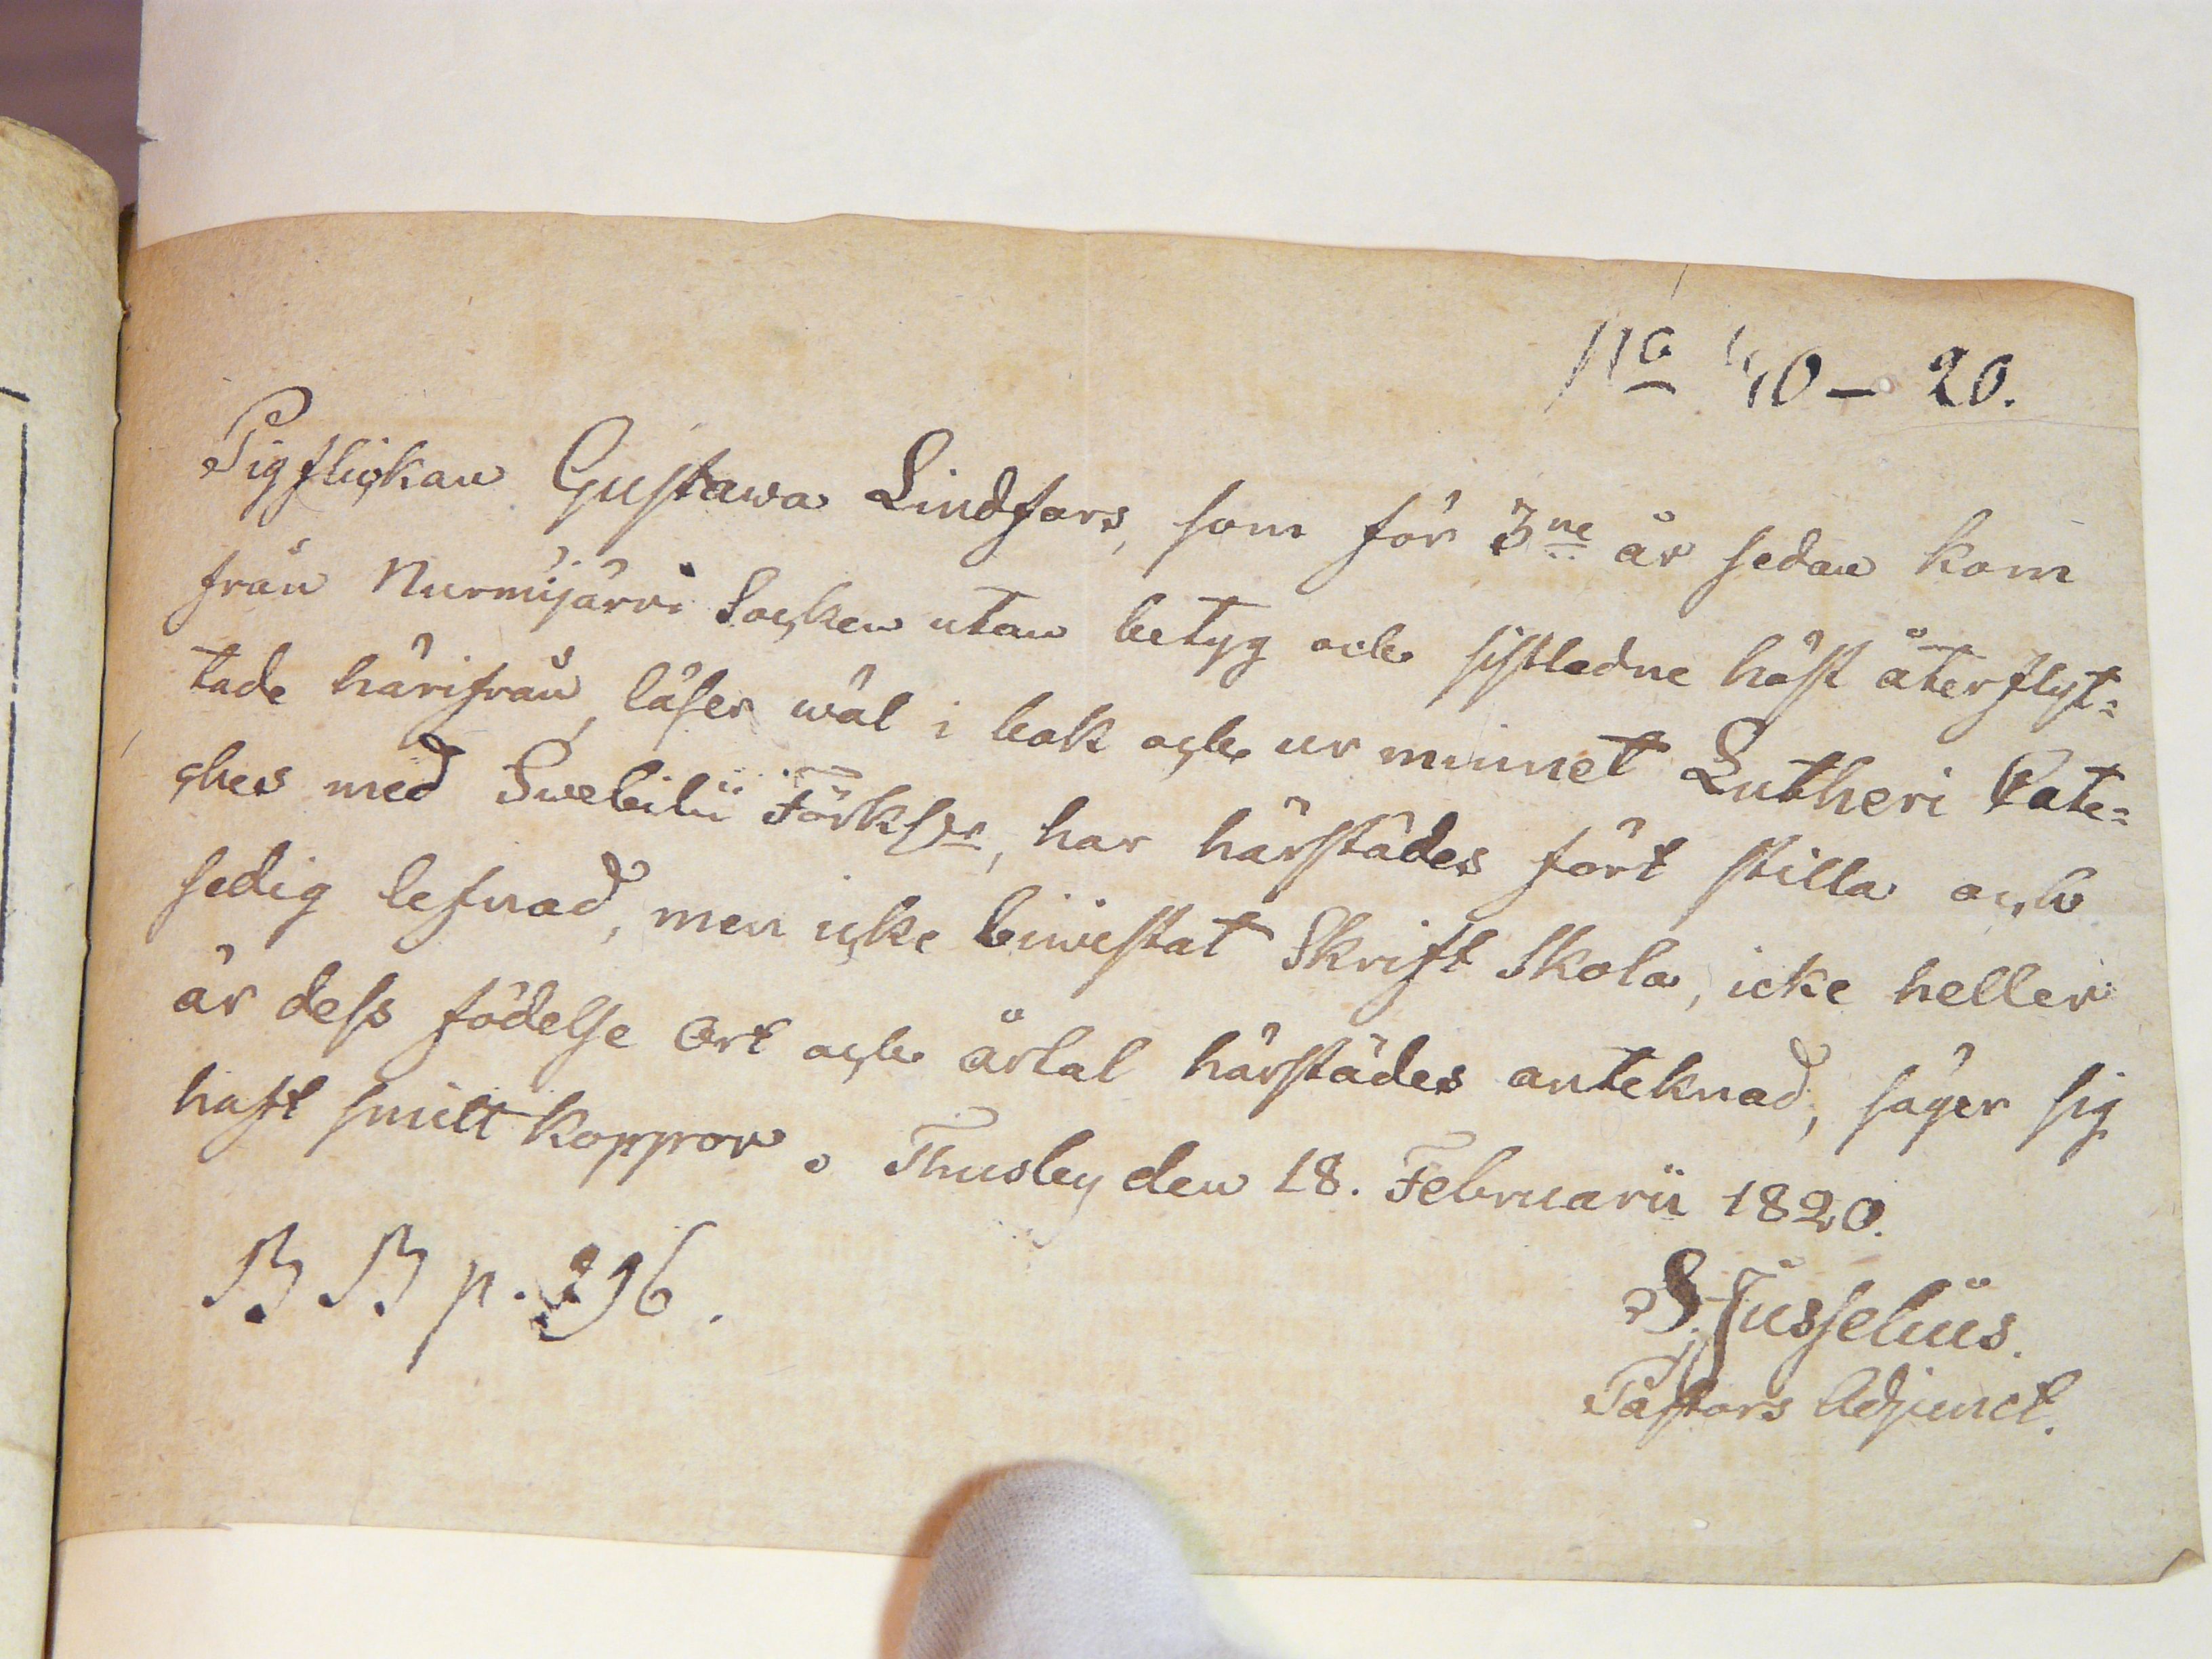 No 40 – 20.
Pigflickan Gustawa Lindfors, som för 3ne år sedan kom
från Nurmijärvi Socken utan betyg och sistledne höst återflyt=
tade härifrån, läser wäl i bok och ur minnet Lutheri Cate=
ches med Swebilii Förkl:r, har härstädes fört stilla och
sedig lefnad, men icke biwistat Skrift Skola, icke heller
är dess födelse Ort och årtal härstädes anteknad, säger sig
haft smittkoppor. Thusby den 18. Februarii 1820.
B B p. 296.
Pastors Adjunct.